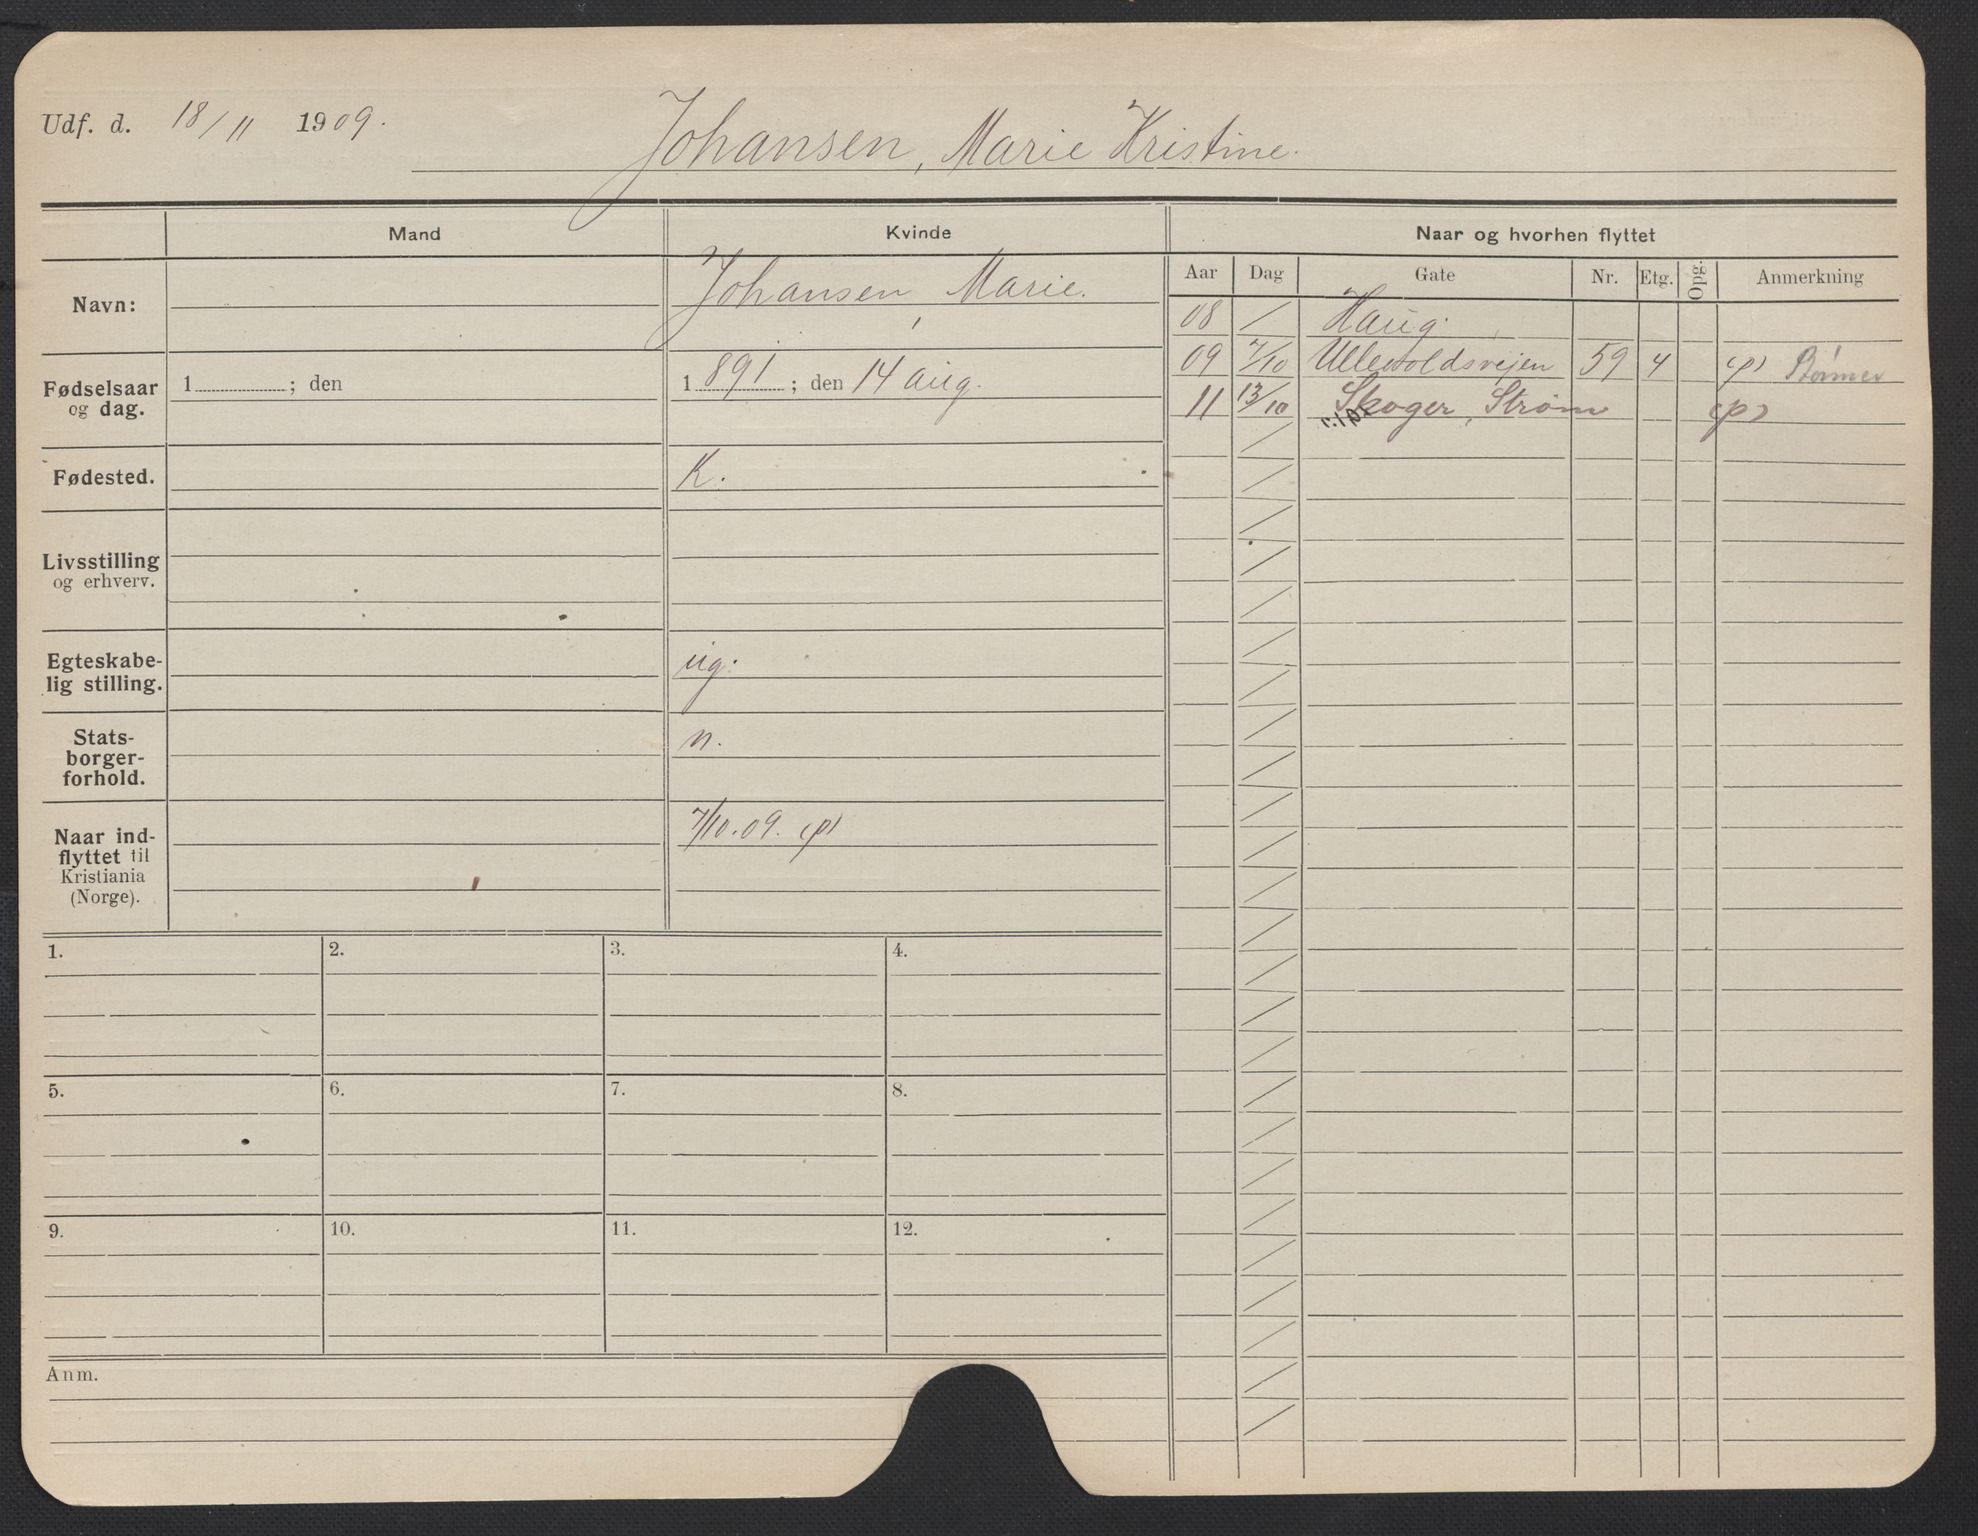 Udf. d. 18/11 1909.
Johansen, Marie Kristine.
Mand
Kvinde
Naar og hvorhen flyttet
Navn:
Johansen, Marie.
Aar Dag Gate Nr. Etg. Opg. Anmerkning
08 / Haug.
09 7/10 Ullevoldsvejen 59 4 (p)
11 13/10 Skoger, Strøm (p)
Fødselsaar
og dag.
1 ; den
1 891 ; den 14 aug.
Fødested.
K.
Livsstilling
og erhverv.
Egteskabe-
lig stilling.
ug.
Stats-
borger-
forhold.
n.
Naar ind-
flyttet til
Kristiania
(Norge).
7/10.09. (p)
1. 2. 3. 4.
5. 6. 7. 8.
9. 10. 11. 12.
Anm.